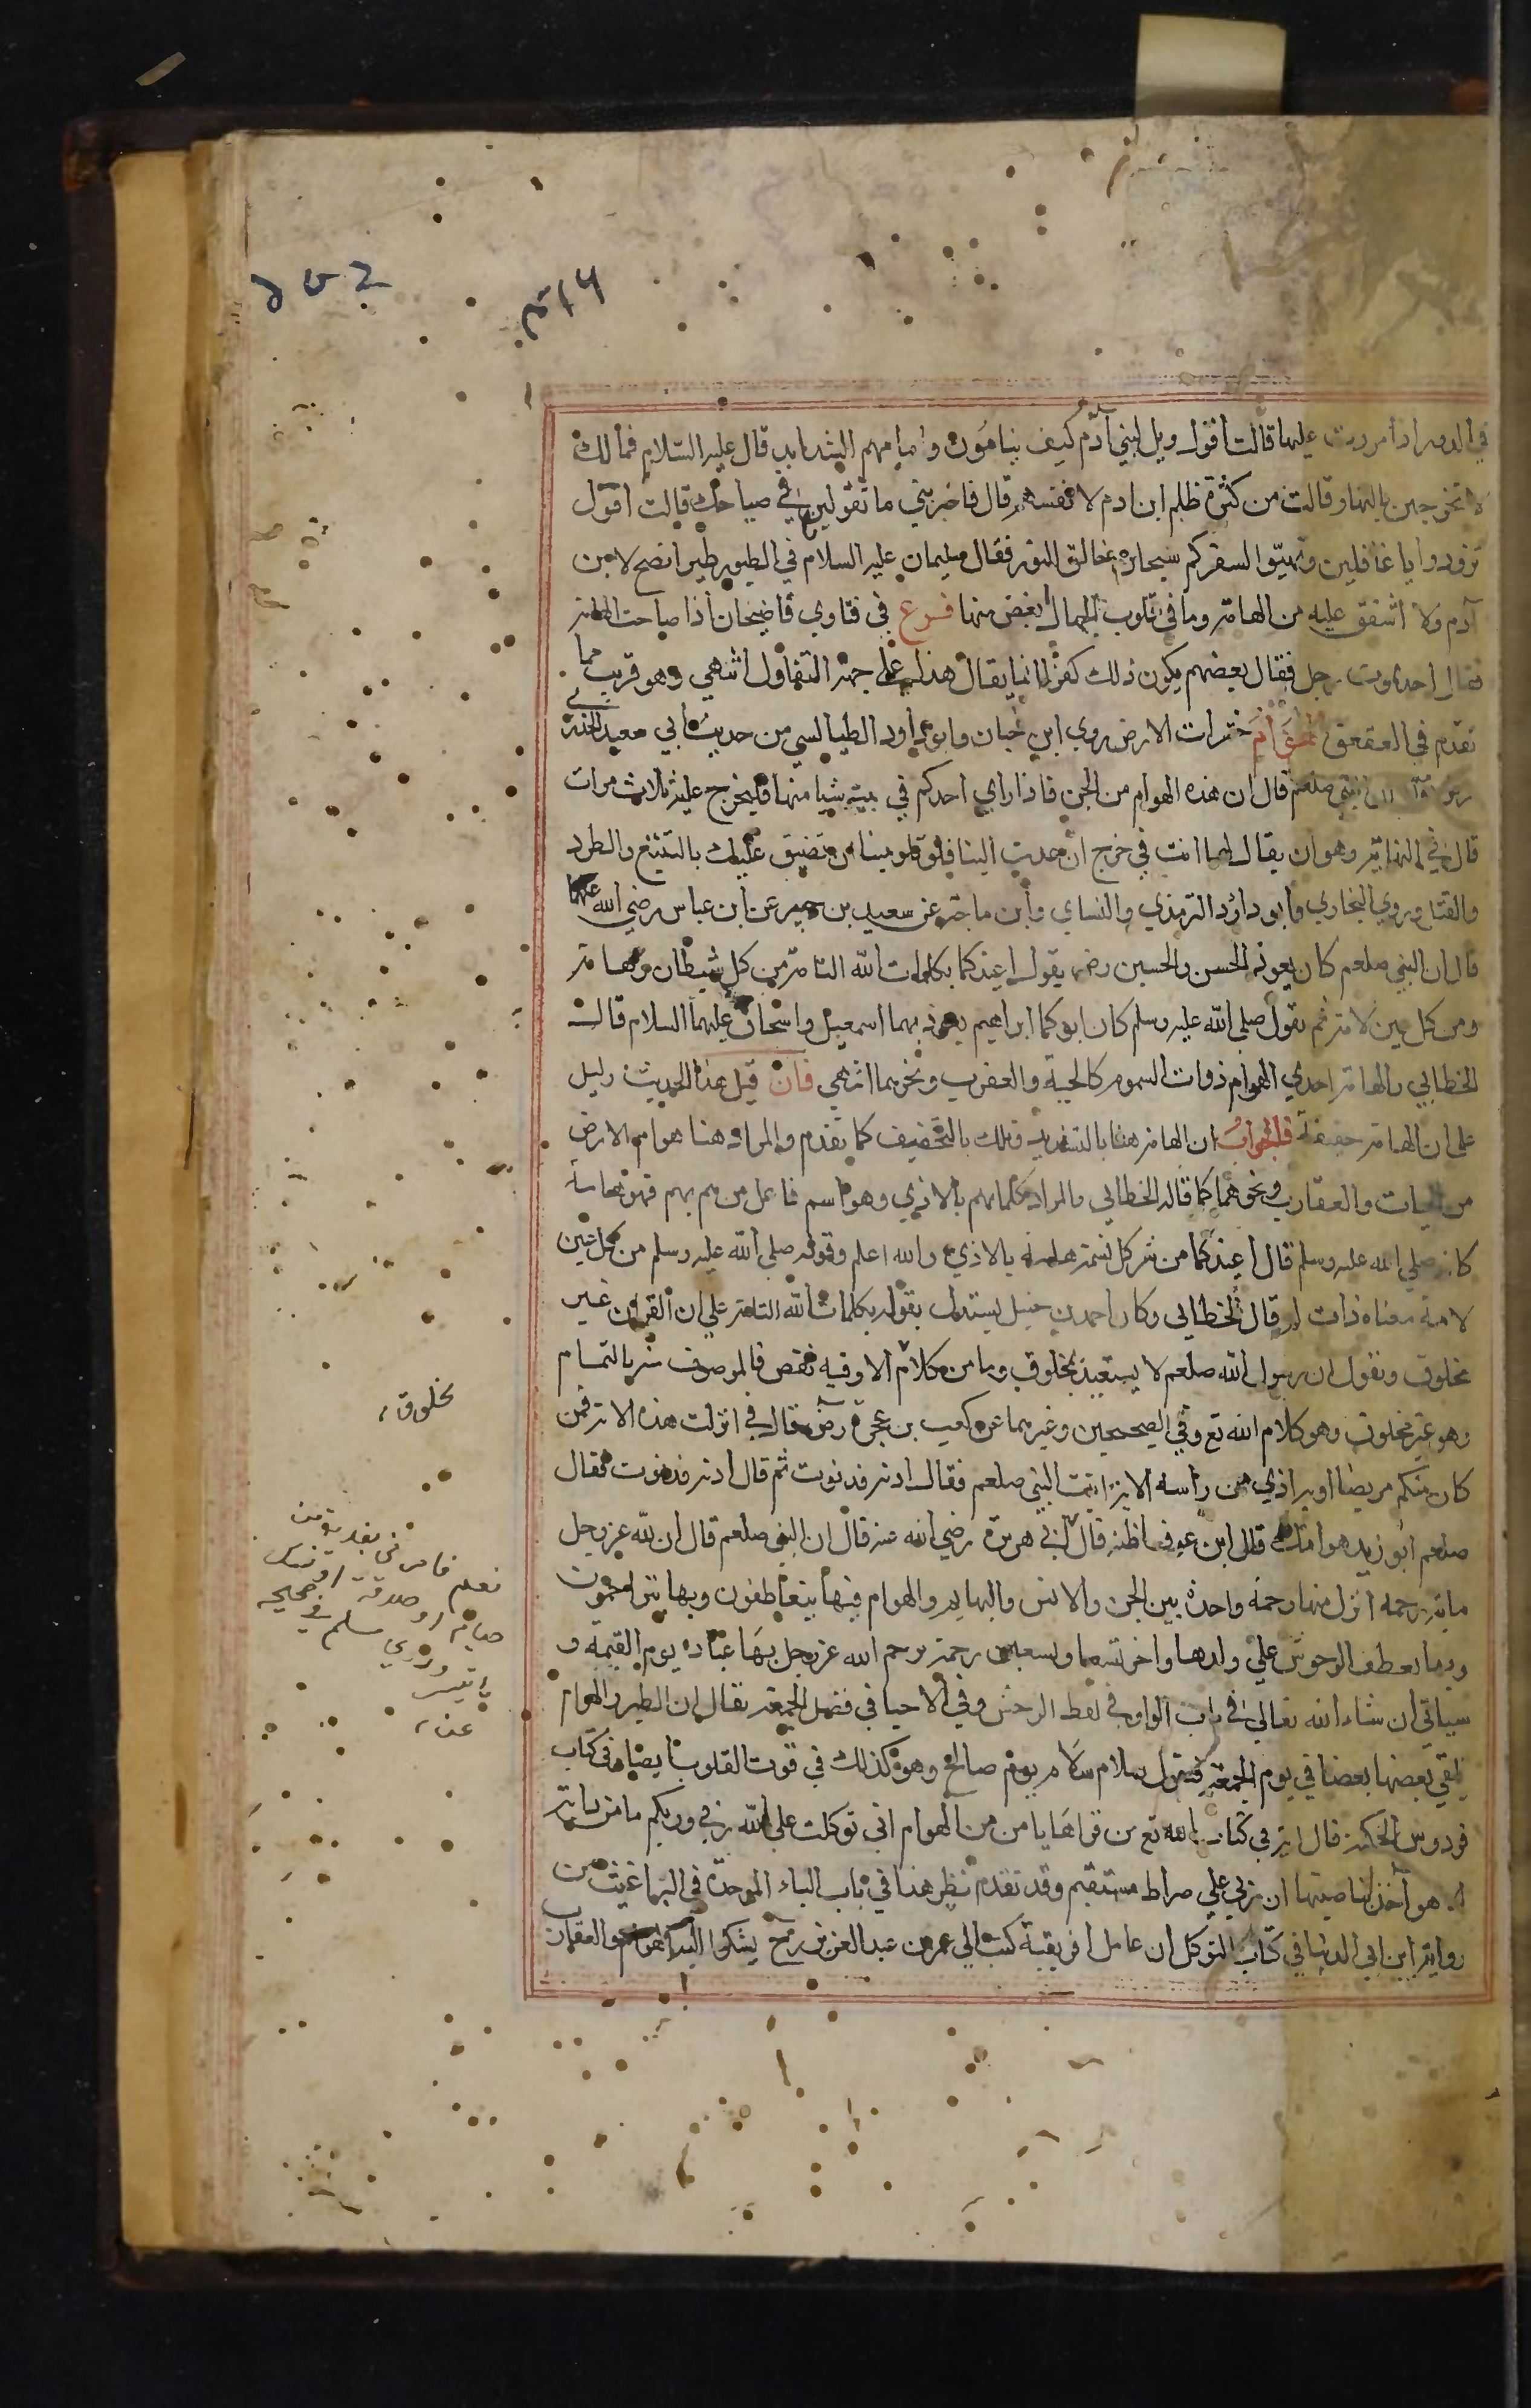 في الدور اذا مررت عليها قالت اقول ويل لبني آدم كيف ينامون وامامهم الشدايد قال عليه السلام فمالك
لا تخرجين بالنهار قالت من كثرة ظلم ابن ادم لانفسهم قال فاخبريني ما تقولين في صياحك قالت اقول
تزودوا يا غافلين وتهيئوا لسفركم سبحان خالق النور فقال سليمان عليه السلام في الطيور طير انصح لابن
آدم ولا اشفق عليه من الهامة وما في قلوب الجهال ابغض منها فرع في فتاوي قاضيخان اذا صاحت الهامة
فقال احد يموت رجل فقال بعضهم يكون ذلك كفرا انما يقال هذا على جهة التفاول انتهي وهو قريب مما
تقدم في العقعق الهوام حشرات الارض روي ابن حبان وابو داود الطيالسي من حديث ابي سعيد الخدري
رضي ان النبي صلعم قال ان هذه الهوام من الجن فاذا راي احدكم في بيته شيا منها فليحرج عليه ثلاث مرات
قال في النهاية وهو ان يقال لها انت في حرج ان عدت الينا فلا تلومينا ان نضيق عليك بالتتبع والطرد
والقتل وروي البخاري وابو داود الترمذي والنساي وابن ماجة عن سعيد بن جبير عن ابن عباس رضي الله عنهما
قال ان النبي صلعم كان يعوذ الحسن والحسين رضي يقول اعيذكما بكلمات الله التامة من كل شيطان وهامة
ومن كل عين لامة ثم يقول صلى الله عليه وسلم كان ابوكما ابراهيم يعوذ بهما اسمعيل واسحاق عليهما السلام قالت
الخطابي الهامة احدي الهوام ذوات السموم كالحية والعقرب ونحوهما انتهي فان قيل هذا الحديث دليل
على ان الهامة حقيقة فالجواب ان الهامة هنا بالتشديد وتلك بالتخفيف كما تقدم والمراد هنا هوام الارض
من الحيات والعقارب ونحوهما كما قاله الخطابي والمراد كلما يهم بالاذي وهو اسم فاعل من هم يهم فهو هامة
كانه صلي الله عليه وسلم قال اعيذكما من شر كل نسمة هامة بالاذي والله اعلم وقوله صلى الله عليه وسلم من كل عين
لامة معناه ذات لمم قال الخطابي وكان احمد بن حنبل يستدل بقوله بكلمات الله التامة على ان القران غير
مخلوق ويقول ان رسول الله صلعم لا يستعيذ بمخلوق وما من كلام الا وفيه نقص فالموصوف منه بالتمام
وهو غير مخلوق وهو كلام الله تع وفي الصحيحين وغيرهما عن كعب بن عجرة رضي قال في انزلت هذه الاية فمن
كان منكم مريضا او به اذي من رأسه الاية اتيت النبي صلعم فقال ادنه فدنوت ثم قال ادنه فدنوت فقال
صلعم ايوذيك هوامك قال ابن عون اظنه قال ابي هريرة رضي الله عنه قال ان النبي صلعم قال ان لله عز وجل
ماية رحمة انزل منها رحمة واحدة بين الجن والانس والبهايم والهوام فبها يتعاطفون وبها يتراحمون
وبها تعطف الوحوش علي ولدها واخر تسعا وتسعين رحمة يرحم الله عز وجل بها عباده يوم القيمة و
سياتي ان شاء الله تعالى في باب الواو في لفظ الوحش وفي الاحيا في فضل الجمعة يقال ان الطير والهوام
يلقي بعضها بعضا في يوم الجمعة فيقول سلام سلام يوم صالح وهو كذلك في قوت القلوب ايضا في كتاب
فردوس الحكمة قال اية في كتاب الله تع من قراها يامن من الهوام اني توكلت على الله ربي وربكم ما من دابة
الا هو آخذ بناصيتها ان ربي علي صراط مستقيم وقد تقدم نظير هذا في باب الباء الموحدة في البراغيث من
رواية ابن ابي الدنيا في كتاب التوكل ان عامل افريقية كتب الي عمر بن عبد العزيز رح يشكوا اليه الهوام والعقارب
مخلوق
نعم فامرني بفدية من
صيام او صدقة او نسك
ما تيسر وروي مسلم في صحيحه
عن